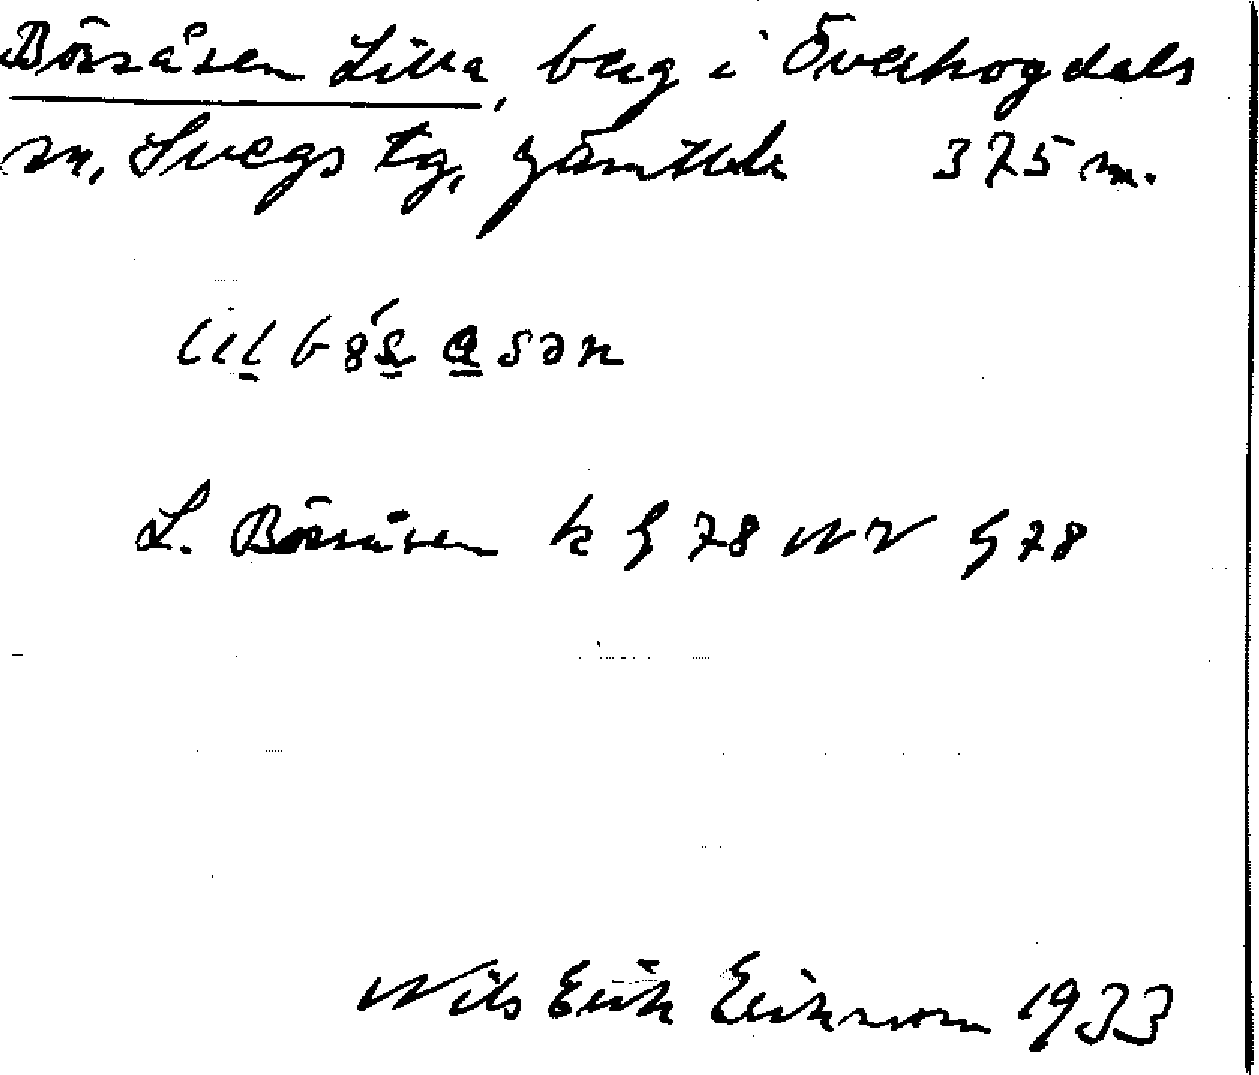 Börsåsen Lilla, berg i Överhogdals
sn, Svegs tg, Jämtl.
375 m.
L. Börsåsen k G 78 NV G 78
Nils Erik Eriksson 1933